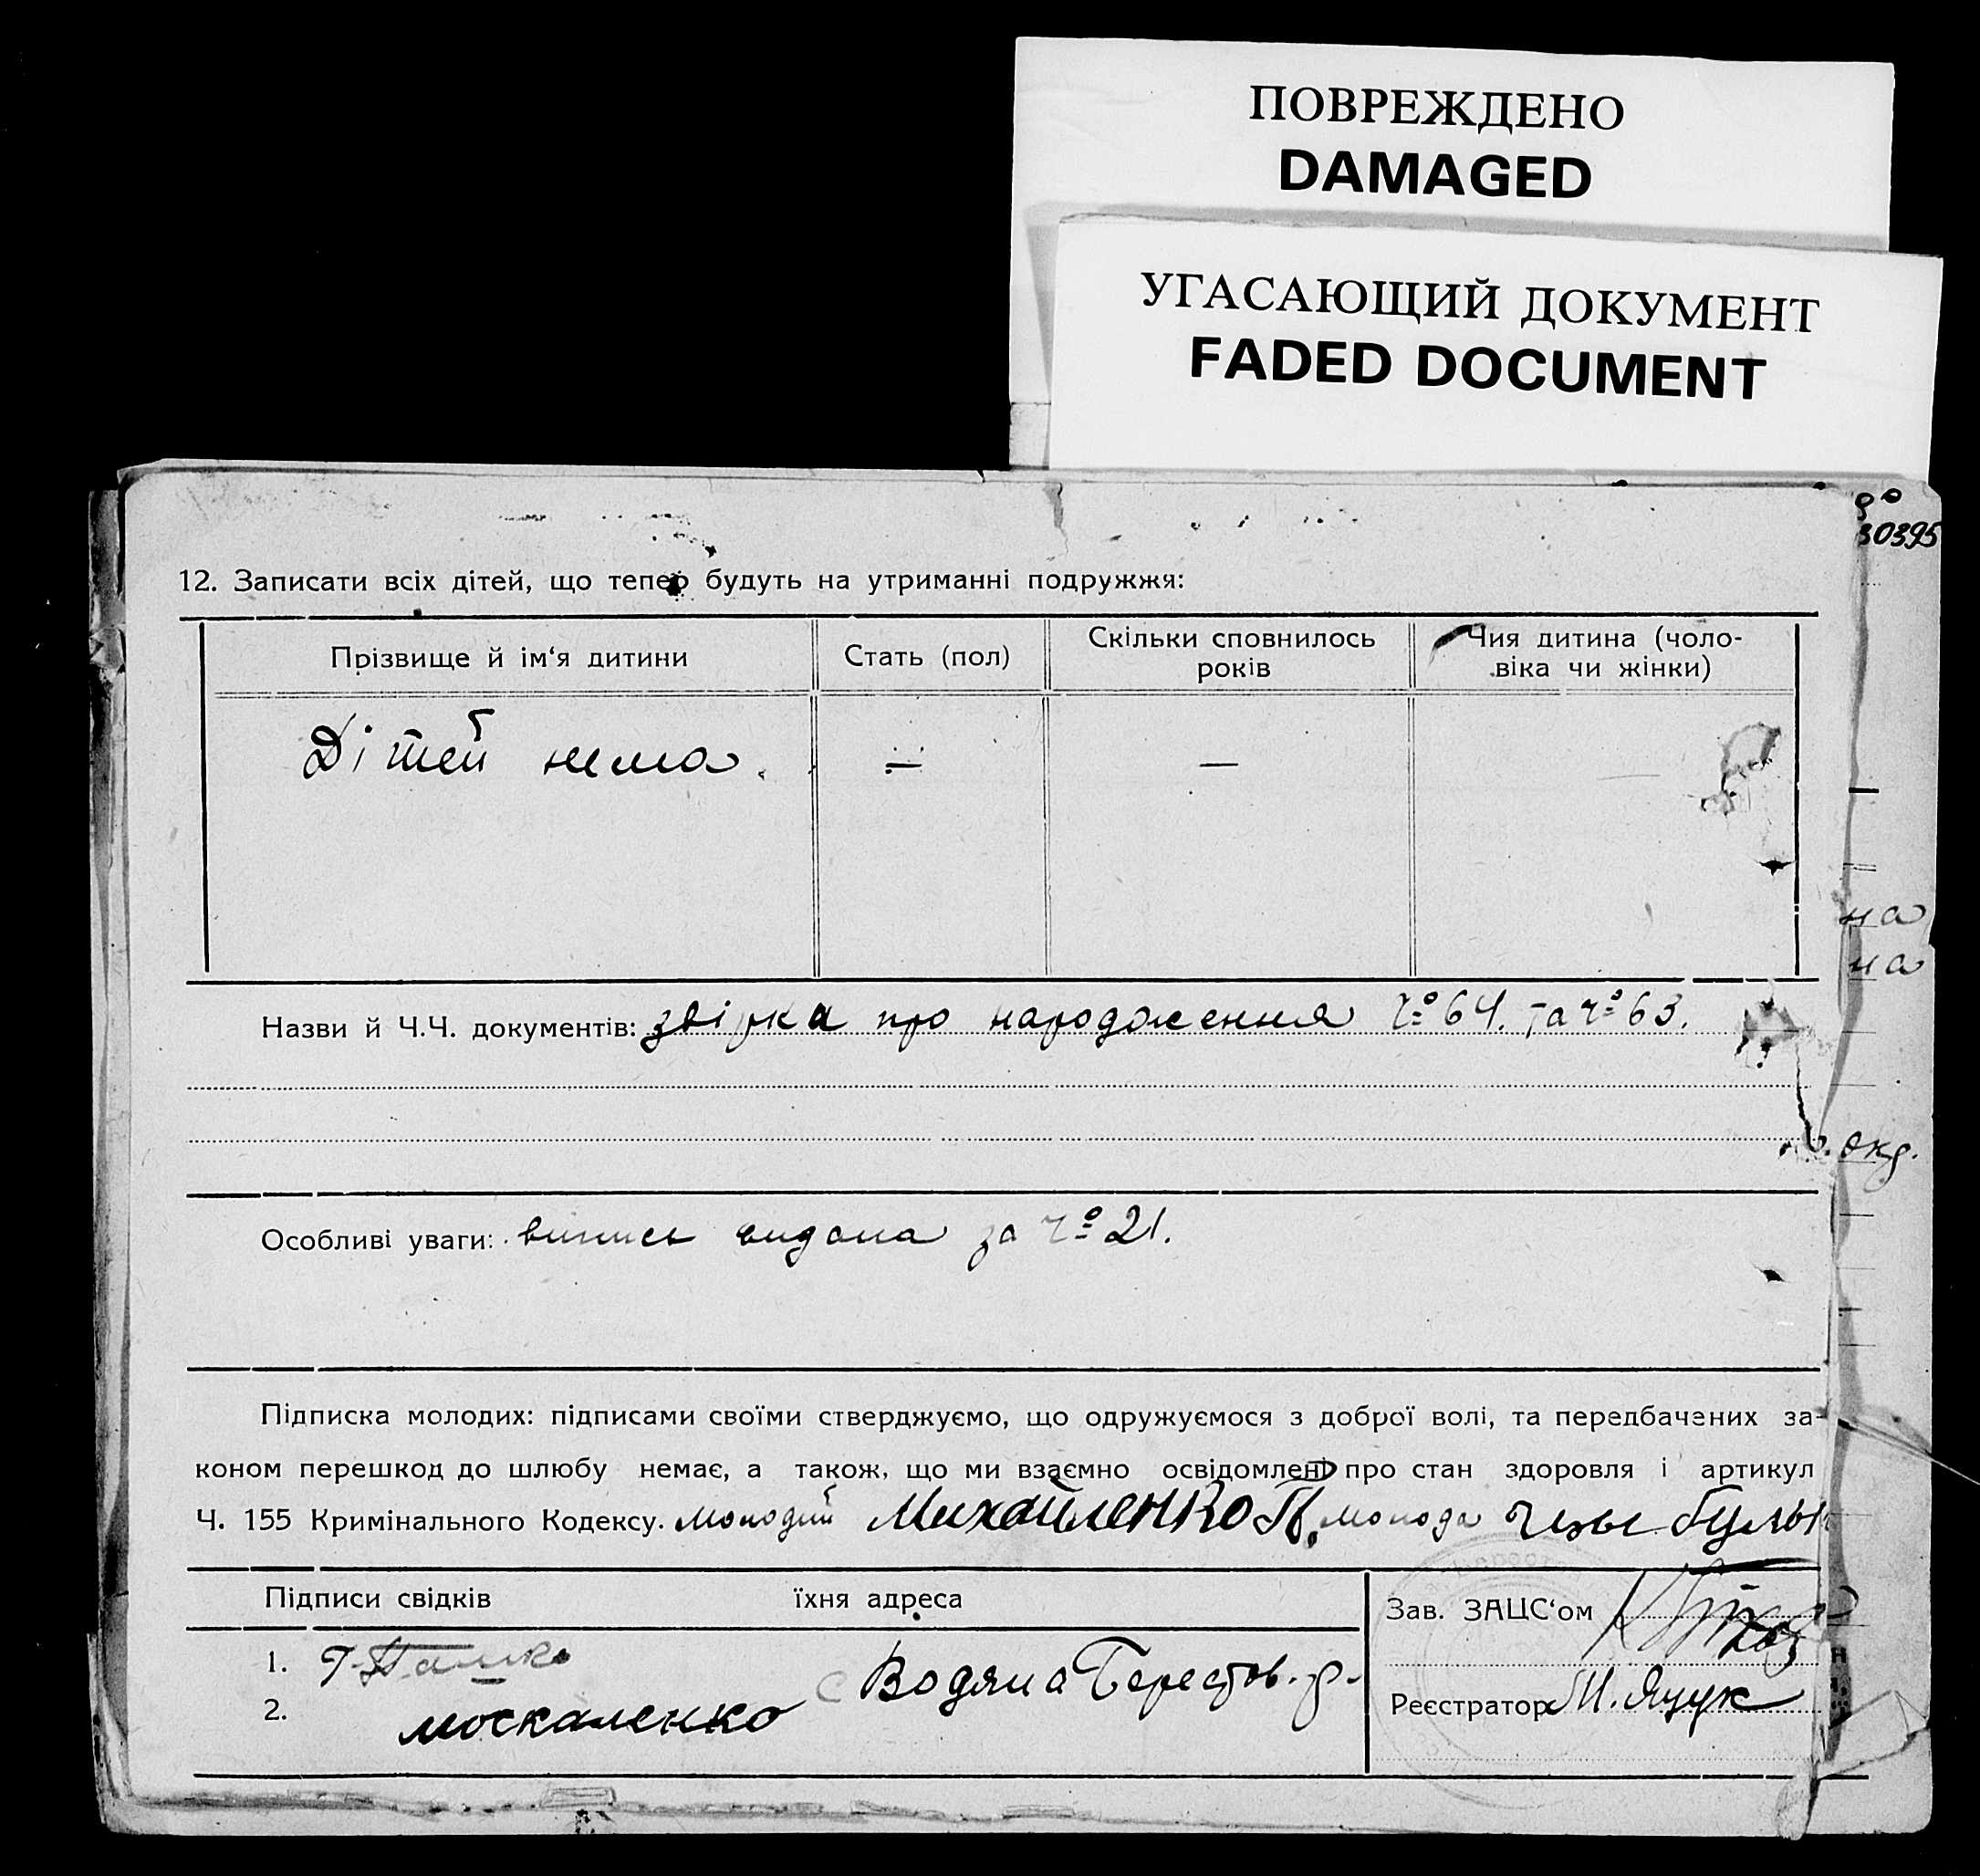 ПОВРЕЖДЕНО
DAMAGED
УГАСАЮЩИЙ ДОКУМЕНТ
FADED DOCUMENT
30395
12. Записати всіх дітей, що тепер будуть на утриманні подружжя:
Прізвище й ім‘я дитини Стать (пол) Скільки сповнилось років Чия дитина (чоловіка чи жінки)
Дітей нема. — —
на
на
Назви й Ч.Ч. документів: звірка про народження Ч№ 64. та Ч№ 63.
окр.
Особливі уваги: випись видана за Ч№ 21.
Підписка молодих: підписами своїми стверджуємо, що одружуємося з доброї волі, та передбачених за-
коном перешкод до шлюбу немає, а також, що ми взаємно освідомлені про стан здоровля і артикул
Ч. 155 Кримінального Кодексу. молодий Михайленко П. молода
Підписи свідків їхня адреса Зав. ЗАЦС‘ом
1.
с Водяна Берестов. р.
2. москаленко
Реєстратор